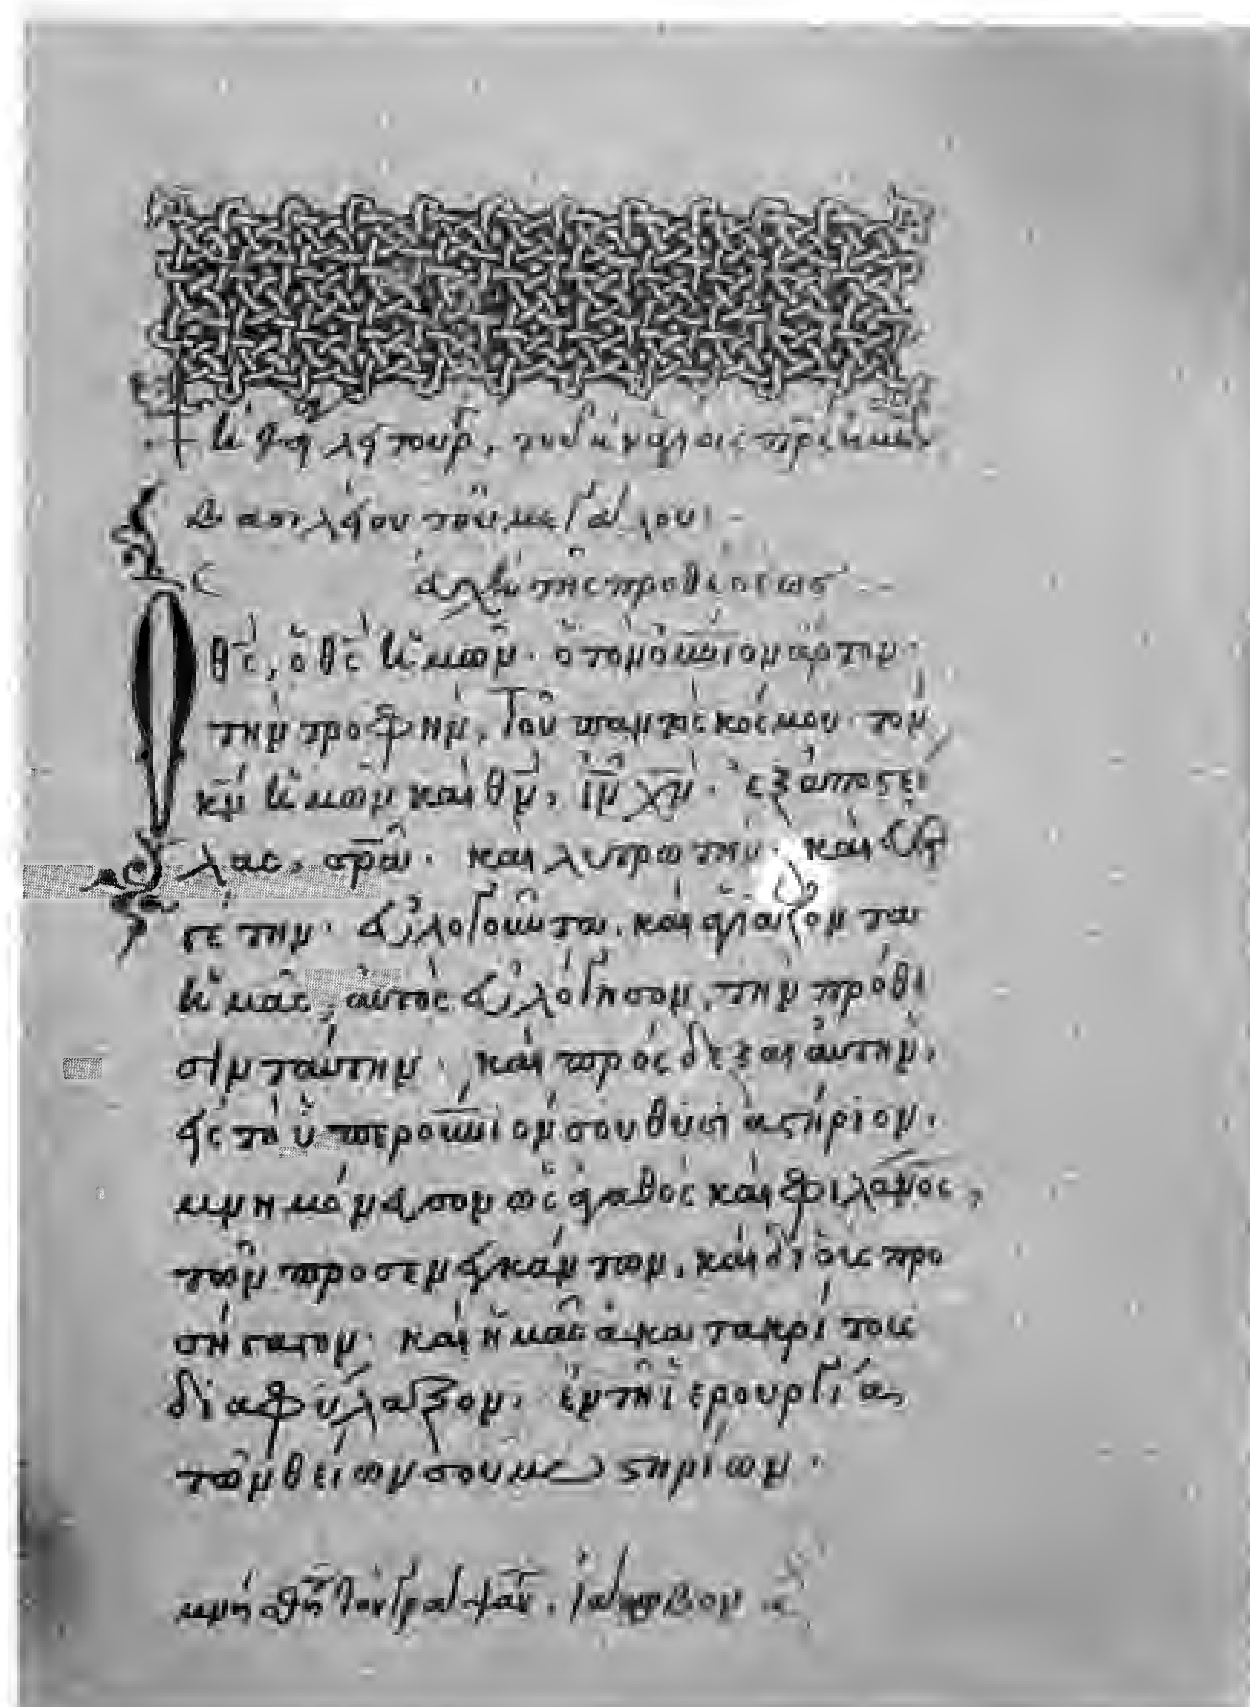 Ἡ θεία λειτουρ, τοῦ ἐν ἁγίοις πρς ἡμῶν
Βασιλείου τοῦ μεγάλου:-
εὐχὴ τῆς προθέσεως
Ὁ θς, ὁ θς ἡμῶν· ὁ τὸν οὐνιον ἄρτον·
τὴν τροφὴν, τοῦ παντὸς κόσμου· τὸν
κν ἡμῶν καὶ θν, ιν χν· ἐξαποστεί
λας, σρα· καὶ λυτρωτὴν· καὶ εὐερ
γέτην· εὐλογοῦντα, καὶ ἁγιάζοντα
ἡμᾶς, αὐτὸς εὐλόγησον, τὴν πρόθε
σιν ταύτην· καὶ πρόσδεξαι αὐτὴν,
εἰς τὸ ὑπερουνιόν σου θυσιαστήριον.
μνημόνευσον ὡς ἀγαθὸς καὶ φιλανος,
τῶν προσενεγκάντων, καὶ δι' οὓς προ
σήγαγον· καὶ ἡμᾶς ἀκατακρίτους
διαφύλαξον, ἐν τῇ ἱερουργίᾳ
τῶν θείων σου μυστηρίων·